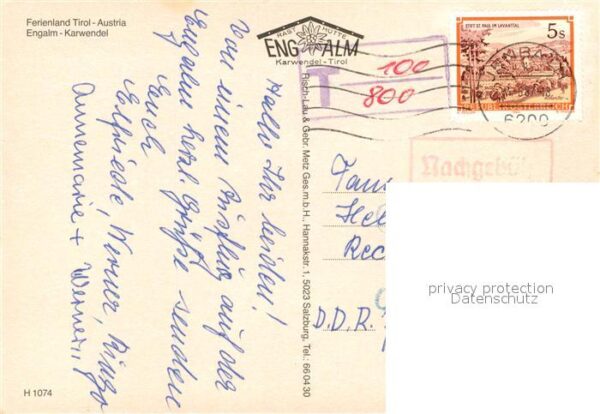 Ferienland Tirol - Austria
Engalm - Karwendel
Hallo Ihr beiden!
Von einem Ausflug auf der
Engalm herzl. Grüße senden
Euch
Elfriede, Werner, Ringo
Annemarie + Werner
H 1074
RAST HÜTTE
ENG ALM
Karwendel - Tirol
Risch-Lau & Gebr. Metz Ges.m.b.H., Hannakstr. 1, 5023 Salzburg, Tel.: 66 04 30
T 100
800
STIFT ST. PAUL IM LAVANTTAL
5s
REPUBLIK ÖSTERREICH
6200
Nachgebü
Fam
Hel
Rec
D.D.R.
privacy protection
Datenschutz